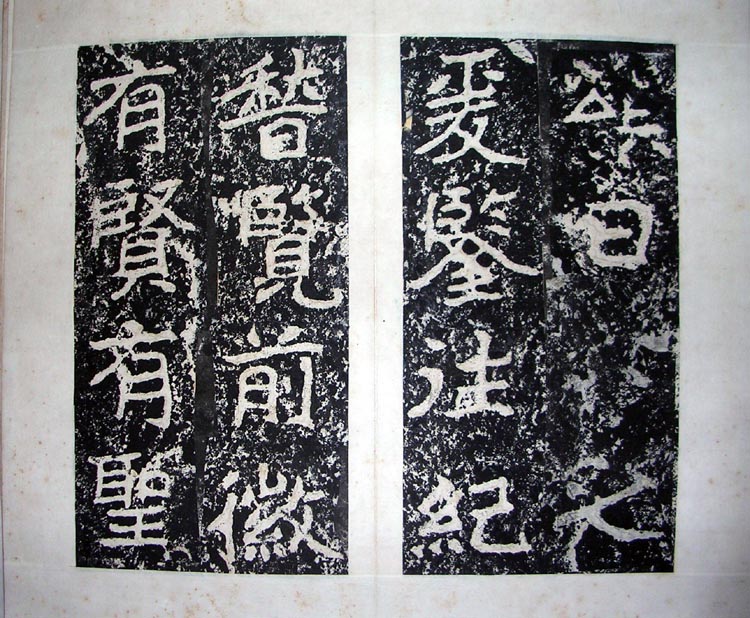 曰
爰鑒往紀
稽覽前徽
有賢有聖